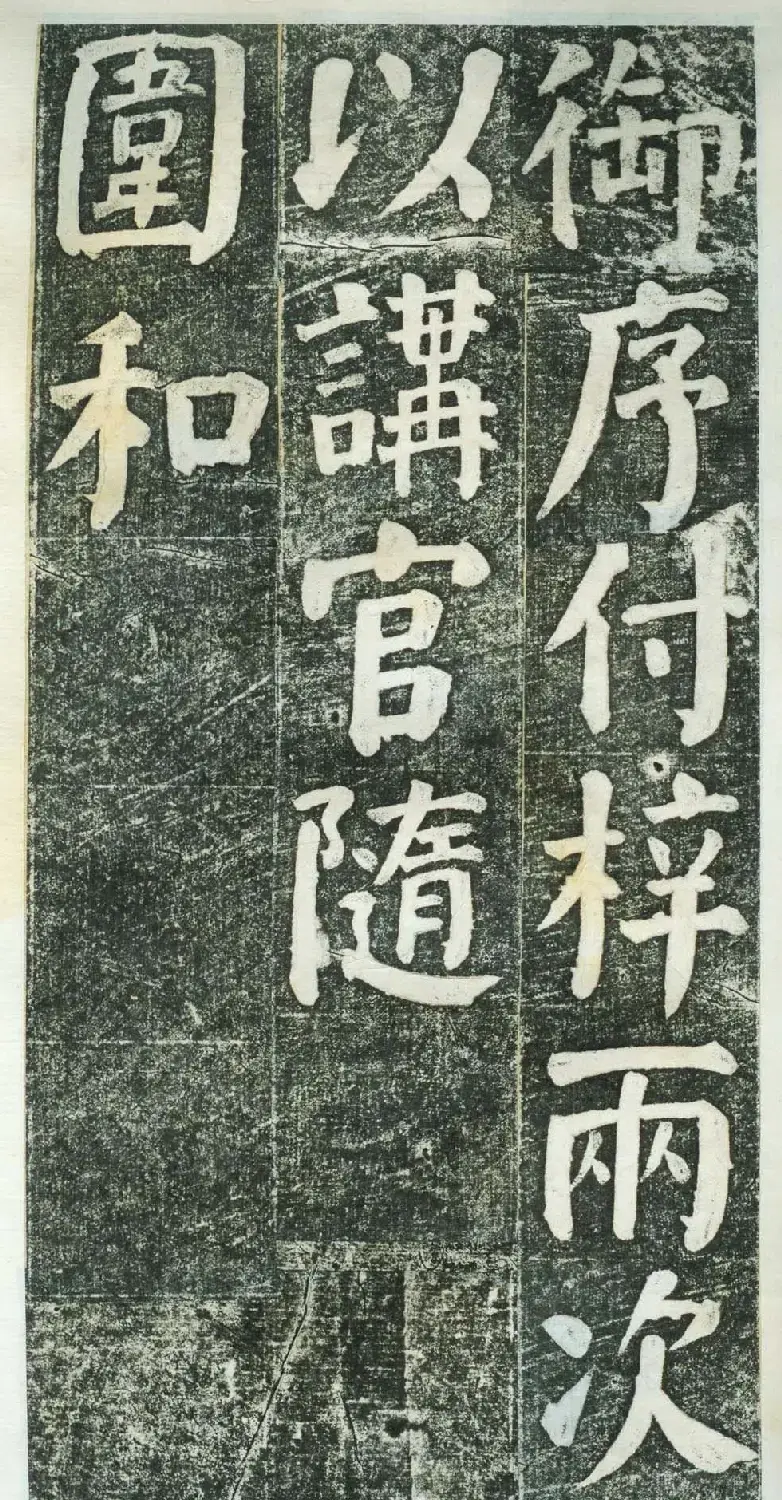 御序付梓兩次
以講官隨
圍和